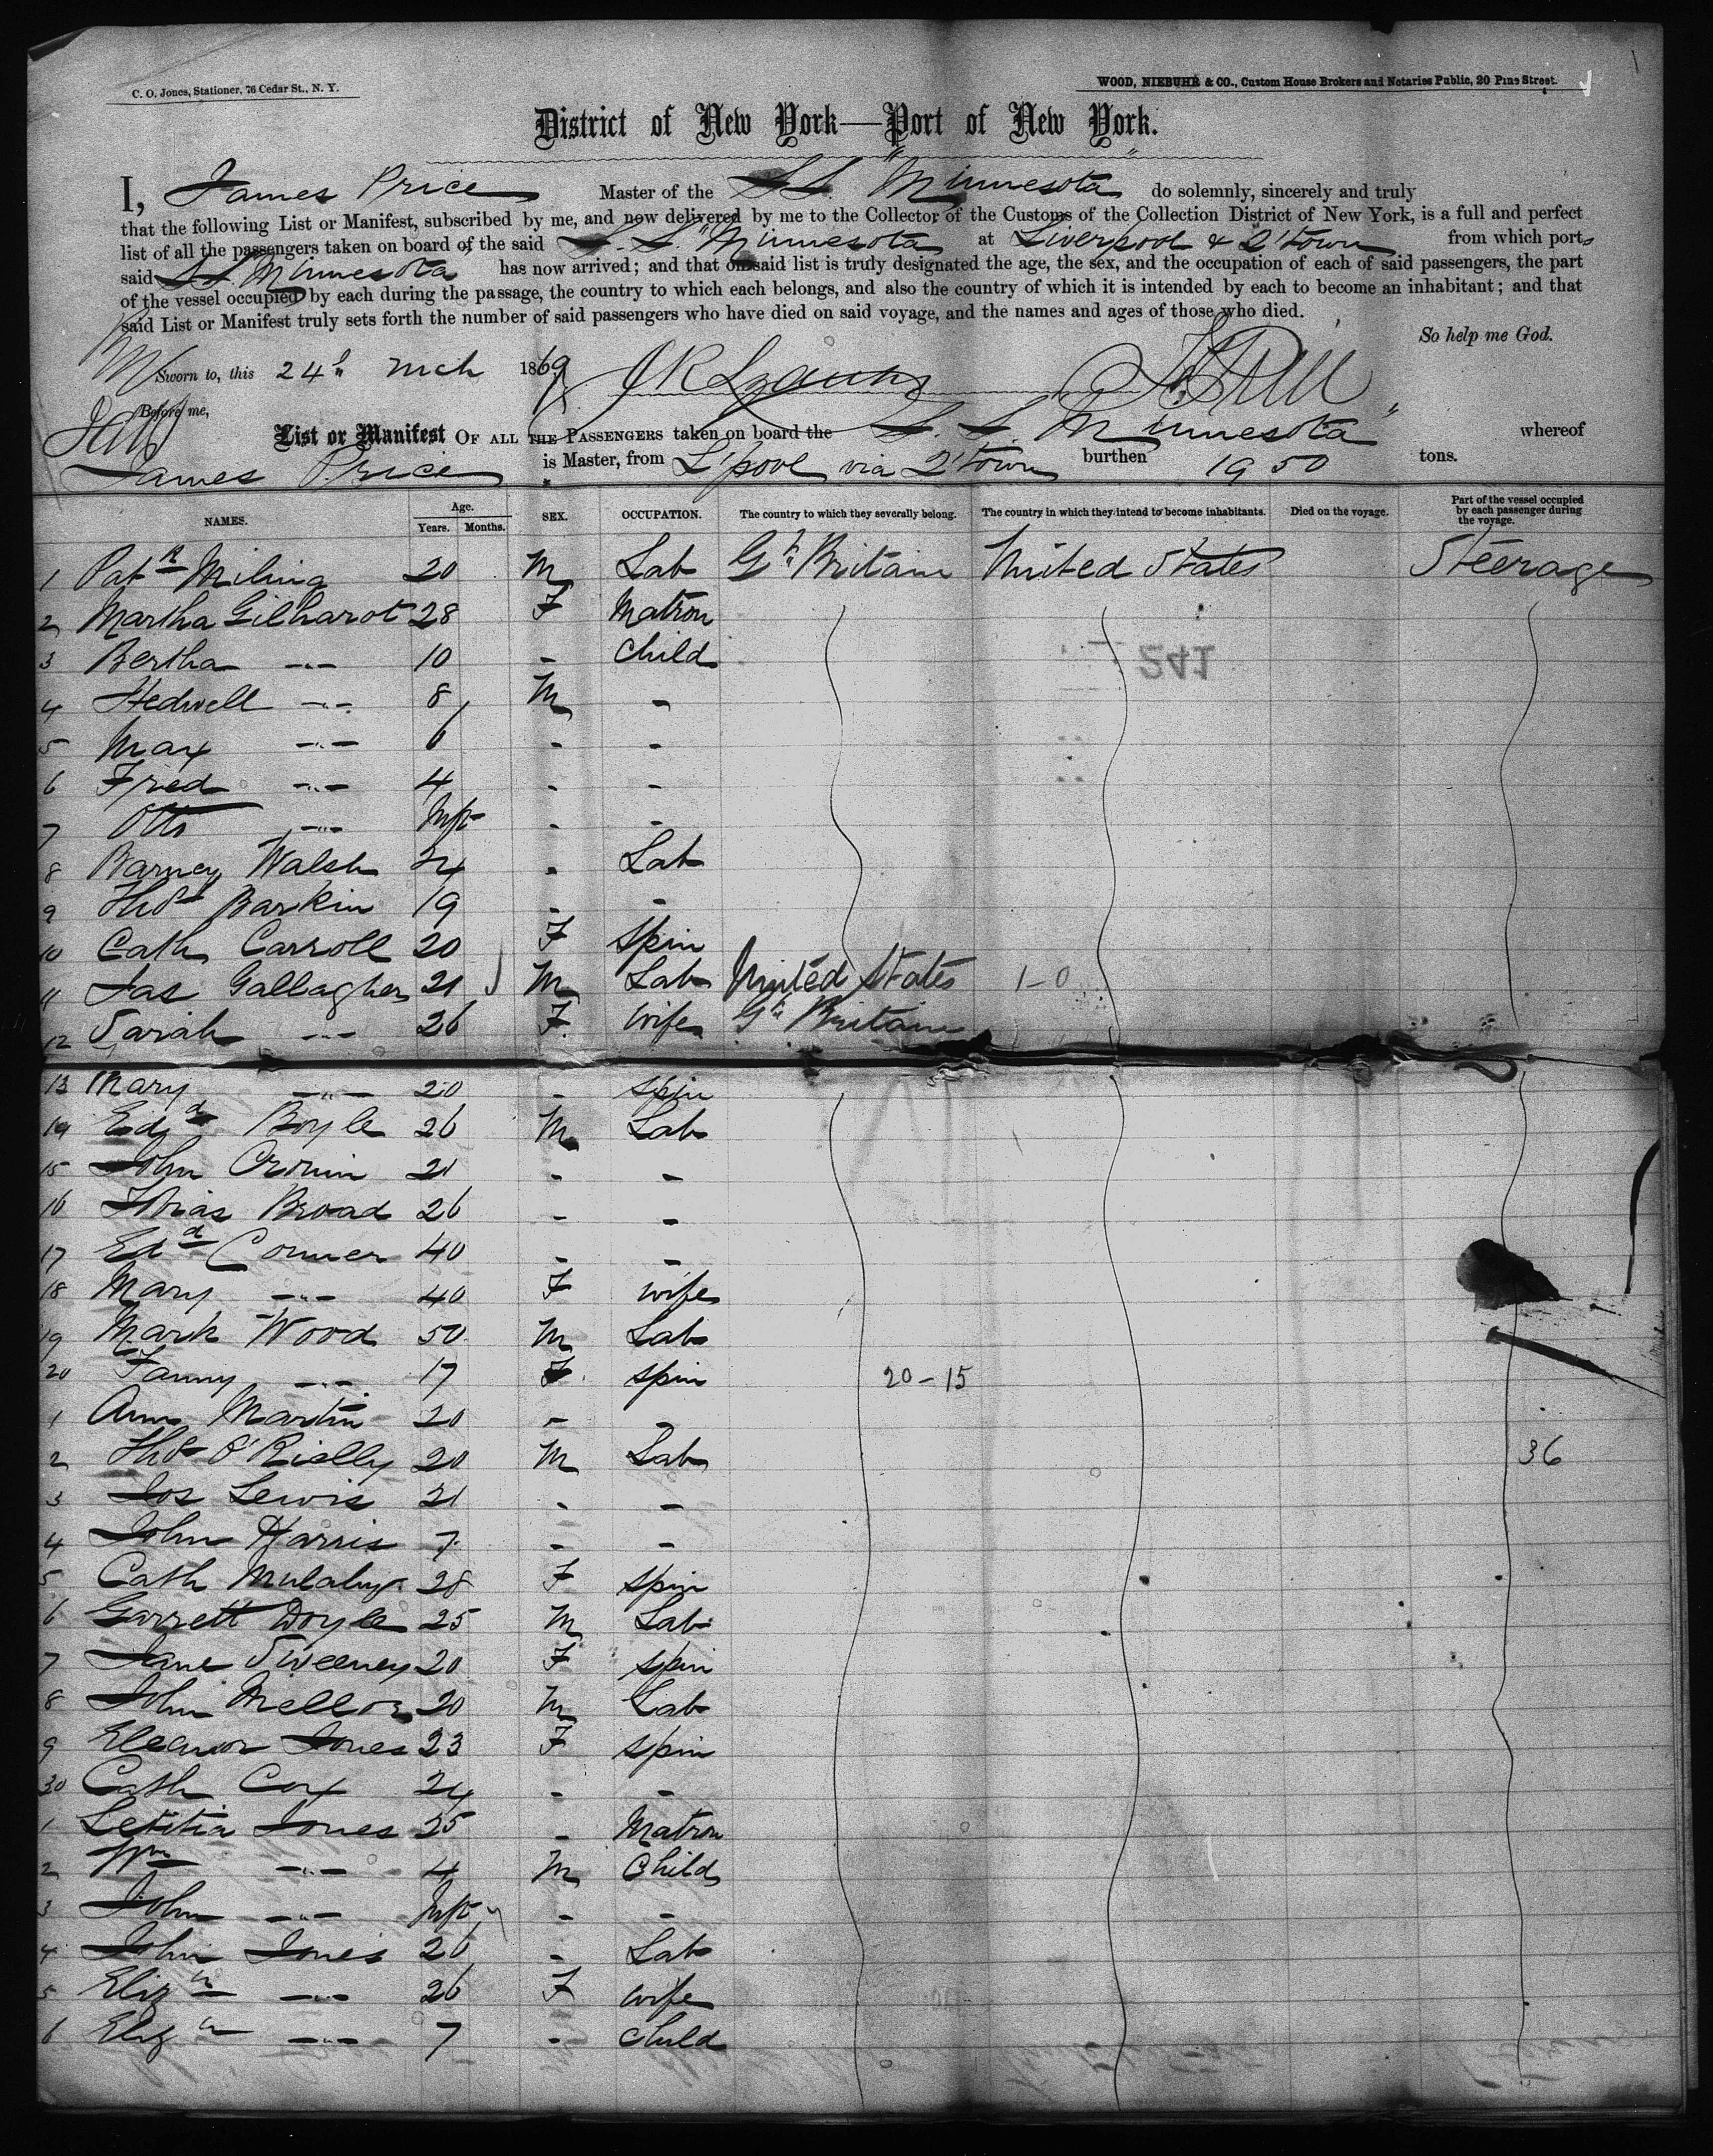 C. O. Jones, Stationer, 76 Cedar St., N. Y.
WOOD, NIEBUHR & CO., Custom House Brokers and Notaries Public, 20 Pine Street.
District of New York—Port of New York.
I, James Price Master of the S.S. "Minnesota" do solemnly, sincerely and truly
that the following List or Manifest, subscribed by me, and now delivered by me to the Collector of the Customs of the Collection District of New York, is a full and perfect
list of all the passengers taken on board of the said S. S. "Minnesota at Liverpool & Q'town from which ports
said S.S. Minnesota has now arrived; and that on said list is truly designated the age, the sex, and the occupation of each of said passengers, the part
of the vessel occupied by each during the passage, the country to which each belongs, and also the country of which it is intended by each to become an inhabitant; and that
said List or Manifest truly sets forth the number of said passengers who have died on said voyage, and the names and ages of those who died.
So help me God.
Sworn to, this 24th Mch 1869
Before me,
List or Manifest OF ALL THE PASSENGERS taken on board the S. S. "Minnesota" whereof
James Price is Master, from L'pool via Q'town burthen 1950 tons.
NAMES. Age. Years. Months. SEX. OCCUPATION. The country to which they severally belong. The country in which they intend to become inhabitants. Died on the voyage. Part of the vessel occupied by each passenger during the voyage.
1 Patk 20 M Lab Gt Britain United States Steerage
2 Martha Gilharot 28 F Matron
3 Bertha -"- 10 - Child
241
4 Hedwell -"- 8 M -
5 Max -"- 6 - -
6 Fred -"- 4 - -
7 Otto -"- Inft - -
8 Barney Walsh 24 - Lab
9 Thos Barkin 19 - -
10 Cath Carroll 20 F Spin
11 Jas Gallagher 21 M Lab United States 1-0
12 Sarah -"- 26 F wife Gt Britain
13 Mary -"- 20 - spin
14 Edd Boyle 26 M Lab
15 John Cronin 21 - -
16 Broad 26 - -
17 Edd Conner 40 - -
18 Mary -"- 40 F wife
19 Mark Wood 50 M Lab
20 Fanny -"- 17 F spin 20-15
1 Ann Martin 20 - -
2 Thos O'Rielly 20 M Lab 36
3 Jos Lewis 21 - -
4 John Harris 7 - -
5 Cath 28 F spin
6 Garrett Doyle 25 M Lab
7 Jane Sweeney 20 F spin
8 John Mellor 20 M Lab
9 Eleanor Jones 23 F spin
30 Cath Cox 24 - -
1 Letitia Jones 25 - Matron
2 Wm -"- 4 M Child
3 John -"- Inft - -
4 John Jones 26 - Lab
5 Elizh -"- 26 F wife
6 Eliz -"- 7 - child